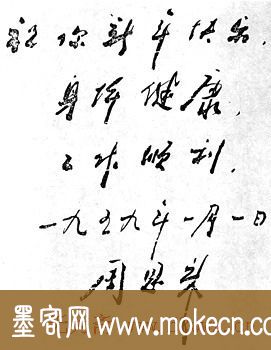 祝你新年快乐.
身体健康.
工作顺利.
一九五九年一月一日
周恩来
墨客网 www.mokecn.com